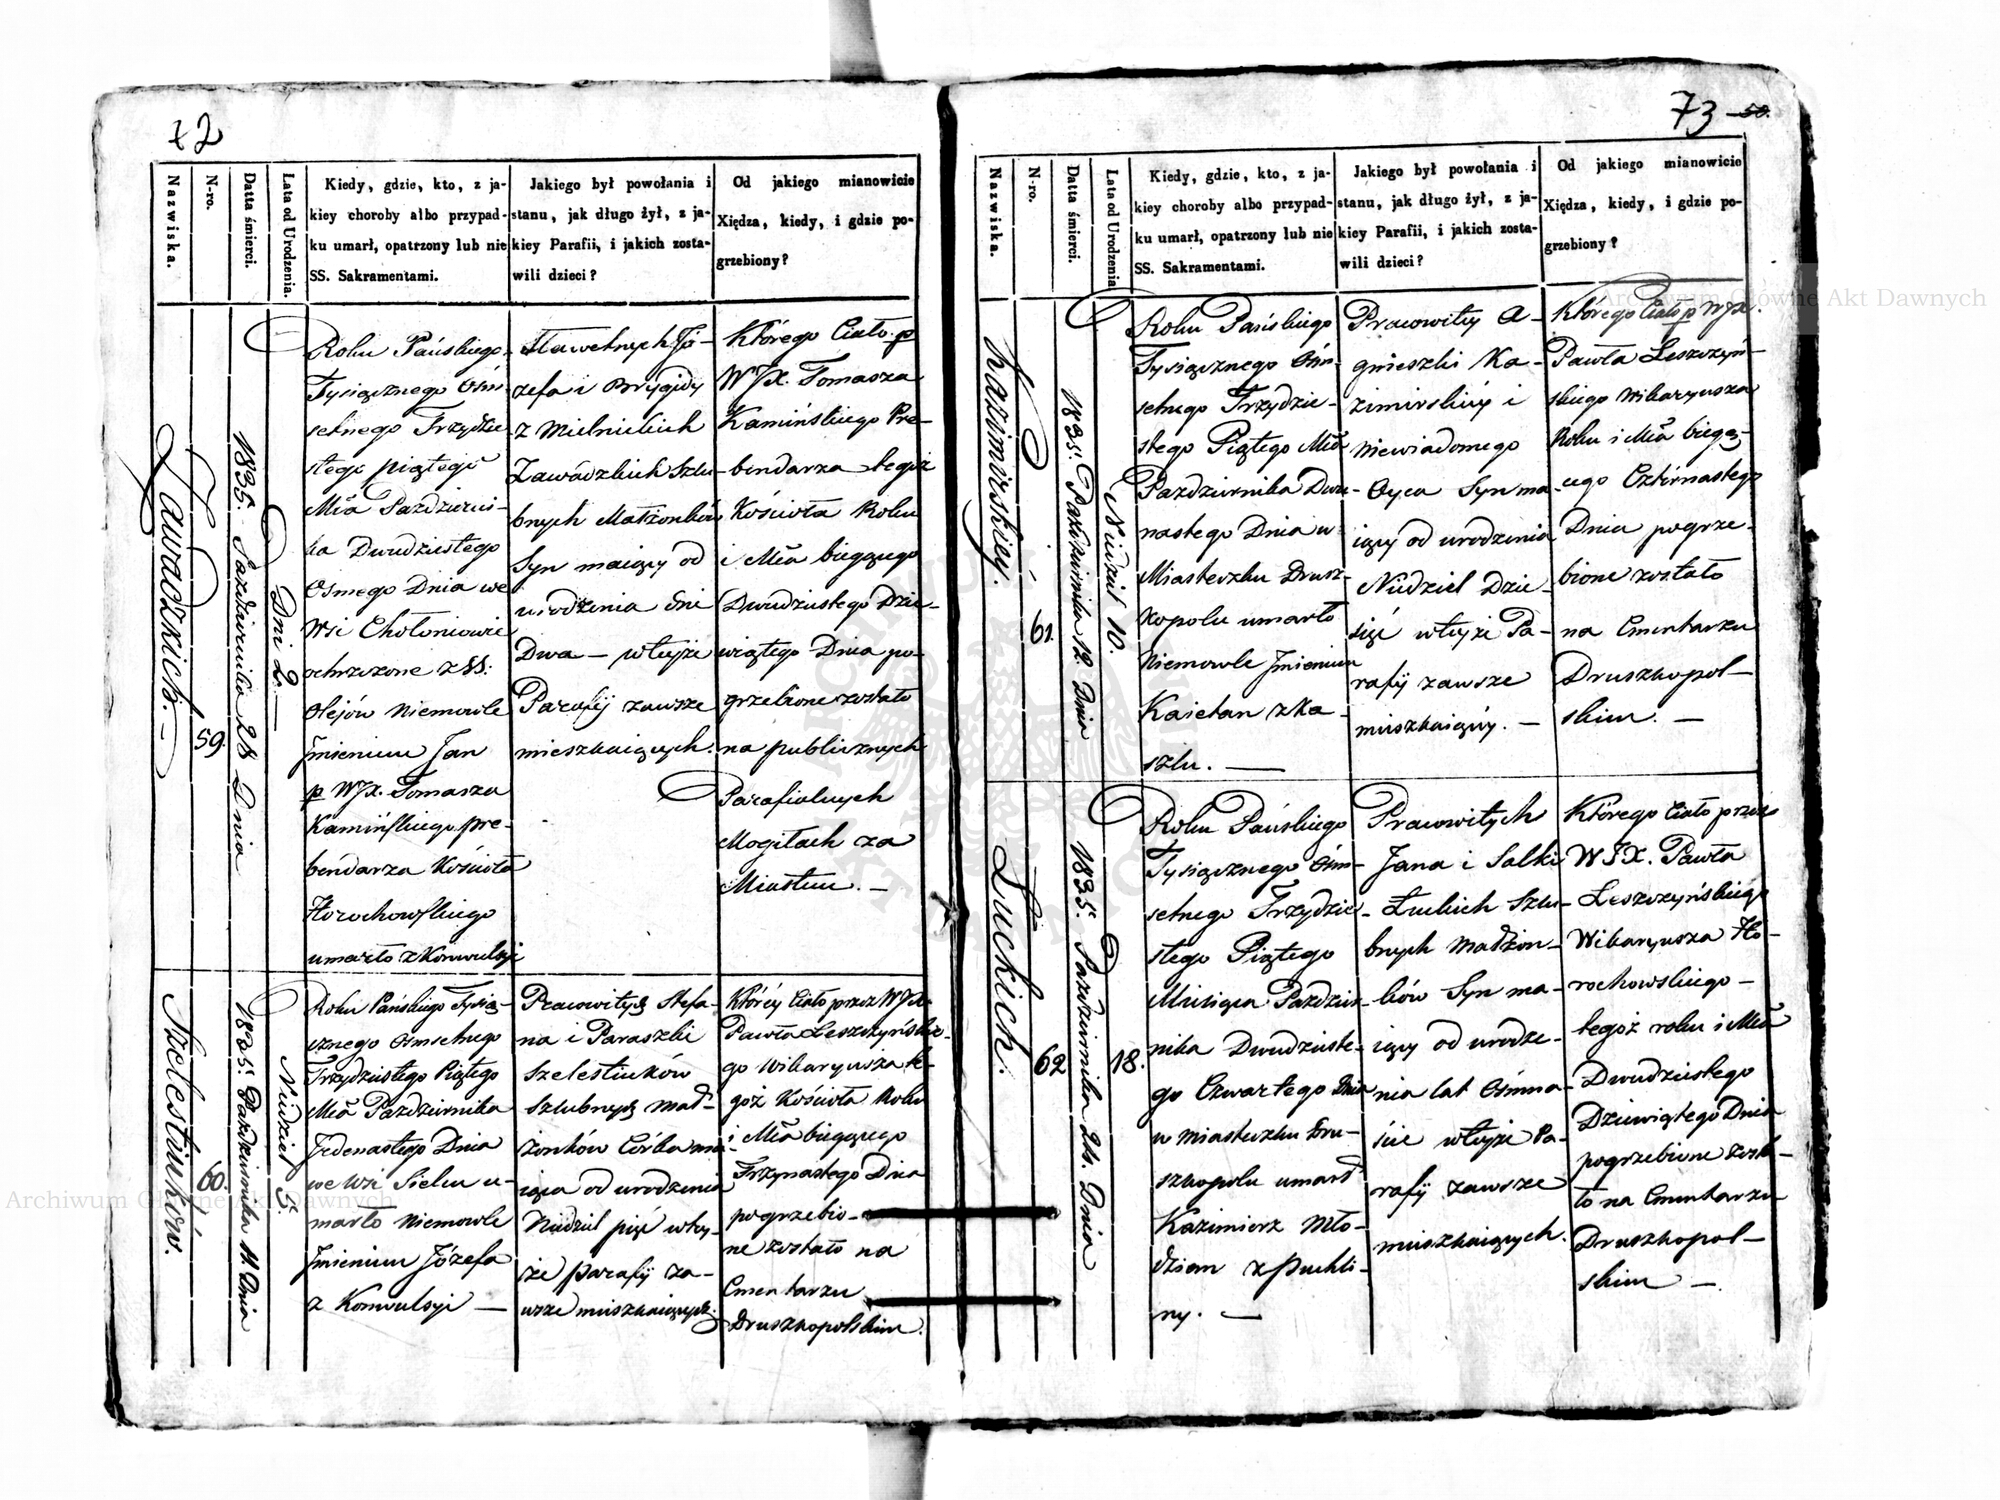 72
Nazwiska.
N-ro.
Datta śmierci.
Lata od Urodzenia.
Kiedy, gdzie, kto, z ja-
kiey choroby albo przypad-
ku umarł, opatrzony lub nie
SS. Sakramentami.
Jakiego był powołania i
stanu, jak długo żył, z ja-
kiey Parafii, i jakich zosta-
wili dzieci?
Od jakiego mianowicie
Xiędza, kiedy, i gdzie po-
grzebiony?
Zawadzkich. —
59.
1835. Pazdziernika 28 Dnia
Dni 2. —
Roku Pańskiego
Tysiącznego Ośm
setnego Trzydzie
stego piątego
Mca Pazdzierni-
ka Dwudziestego
Osmego Dnia we
Wsi Chołoniowie
ochrzczone z SS:
Olejów Niemowle
Jmieniem Jan
p WJX. Tomasza
Kamińskiego pre-
bendarza Kościoła
Horochowskiego
umarło z Konwulsji
Sławetnych Jó-
zefa i Brygidy
z Mielnickich
Zawadzkich Szlu-
bnych Małżonków
Syn maiący od
urodzenia dni
Dwa — w teyże
Parafij zawsze
mieszkaiących.
Którego Ciało p
WJX. Tomasza
Kamińskiego Pre-
bendarza tegoż
Kościoła Roku
i Mca bieżącego
Dwudziestego Dzie-
wiątego Dnia po-
grzebione zostało
na publicznych
Parafialnych
Mogiłach za
Miastem. —
Szelestiuków.
60.
1835. Pazdziernika 11. Dnia
Niedziel 5.
Roku Pańskiego Tysią-
cznego Ośmsetnego
Trzydziestego Piątego
Mca Pazdziernika
Jedenastego Dnia
we Wsi Sielcu u-
marło Niemowle
Jmieniem Józefa
z Konwulsyi —
Pracowitych Stefa-
na i Paraszki
Szelestiuków
Szlubnych Mał-
żonków Córka ma-
iąca od urodzenia
Niedziel pięć w tey-
że parafij za-
wsze mieszkaiących.
Którey Ciało przez WJX.
Pawła Leszczyńskie-
go Wikaryusza te-
goż Kościoła Roku
i Mca bieżącego
Trzynastego Dnia
pogrzebio-
ne zostało na
Cmentarzu
Druszkopolskim.
73 50.
Nazwiska.
N-ro.
Datta śmierci.
Lata od Urodzenia
Kiedy, gdzie, kto, z ja-
kiey choroby albo przypad-
ku umarł, opatrzony lub nie
SS. Sakramentami.
Jakiego był powołania i
stanu, jak długo żył, z ja-
kiey Parafii, i jakich zosta-
wili dzieci?
Od jakiego mianowicie
Xiędza, kiedy, i gdzie po-
grzebiony?
Kazimirskiey.
61.
1835. Pazdziernika 12. Dnia
Niedziel 10.
Roku Pańskiego
Tysiącznego Ośm-
setnego Trzydzie-
stego Piątego Mca
Pazdziernika Dwu-
nastego Dnia w
Miasteczku Drusz-
kopolu umarło
Niemowle Jmieniem
Kaietan z Ka-
szlu. —
Pracowitey A-
gnieszki Ka-
zimirskiey i
niewiadomego
Oyca Syn ma-
iący od urodzenia
Niedziel Dzie-
sięć w teyże Pa-
rafij zawsze
mieszkaiącey. —
Którego Ciało p WJX.
Pawła Leszczyń-
skiego Wikaryusza
Roku i Mca bieżą-
cego Czternastego
Dnia pogrze-
bione zostało
na Cmentarzu
Druszkopol-
skim. —
Łuckich.
62
1835. Pazdziernika 24. Dnia
18.
Roku Pańskiego
Tysiącznego Ośm-
setnego Trzydzie-
stego Piątego
Miesiąca Pazdzier-
nika Dwudzieste-
go Czwartego Dnia
w Miasteczku Dru-
szkopolu umarł
Kazimierz Mło-
dzian z Puchli-
ny. —
Pracowitych
Jana i Salki
Łuckich Szlu-
bnych Małżon-
ków Syn ma-
iący od urodze-
nia lat Ośmna-
ście w teyże Pa-
rafij zawsze
mieszkaiących.
Którego Ciało przez
WJX. Pawła
Leszczyńskiego
Wikaryusza Ho-
rochowskiego —
tegoż roku i Mca
Dwudziestego
Dziewiątego Dnia
pogrzebione zosta-
ło na Cmentarzu
Druszkopol-
skim —.
Archiwum Główne Akt Dawnych
Archiwum Główne Akt Dawnych